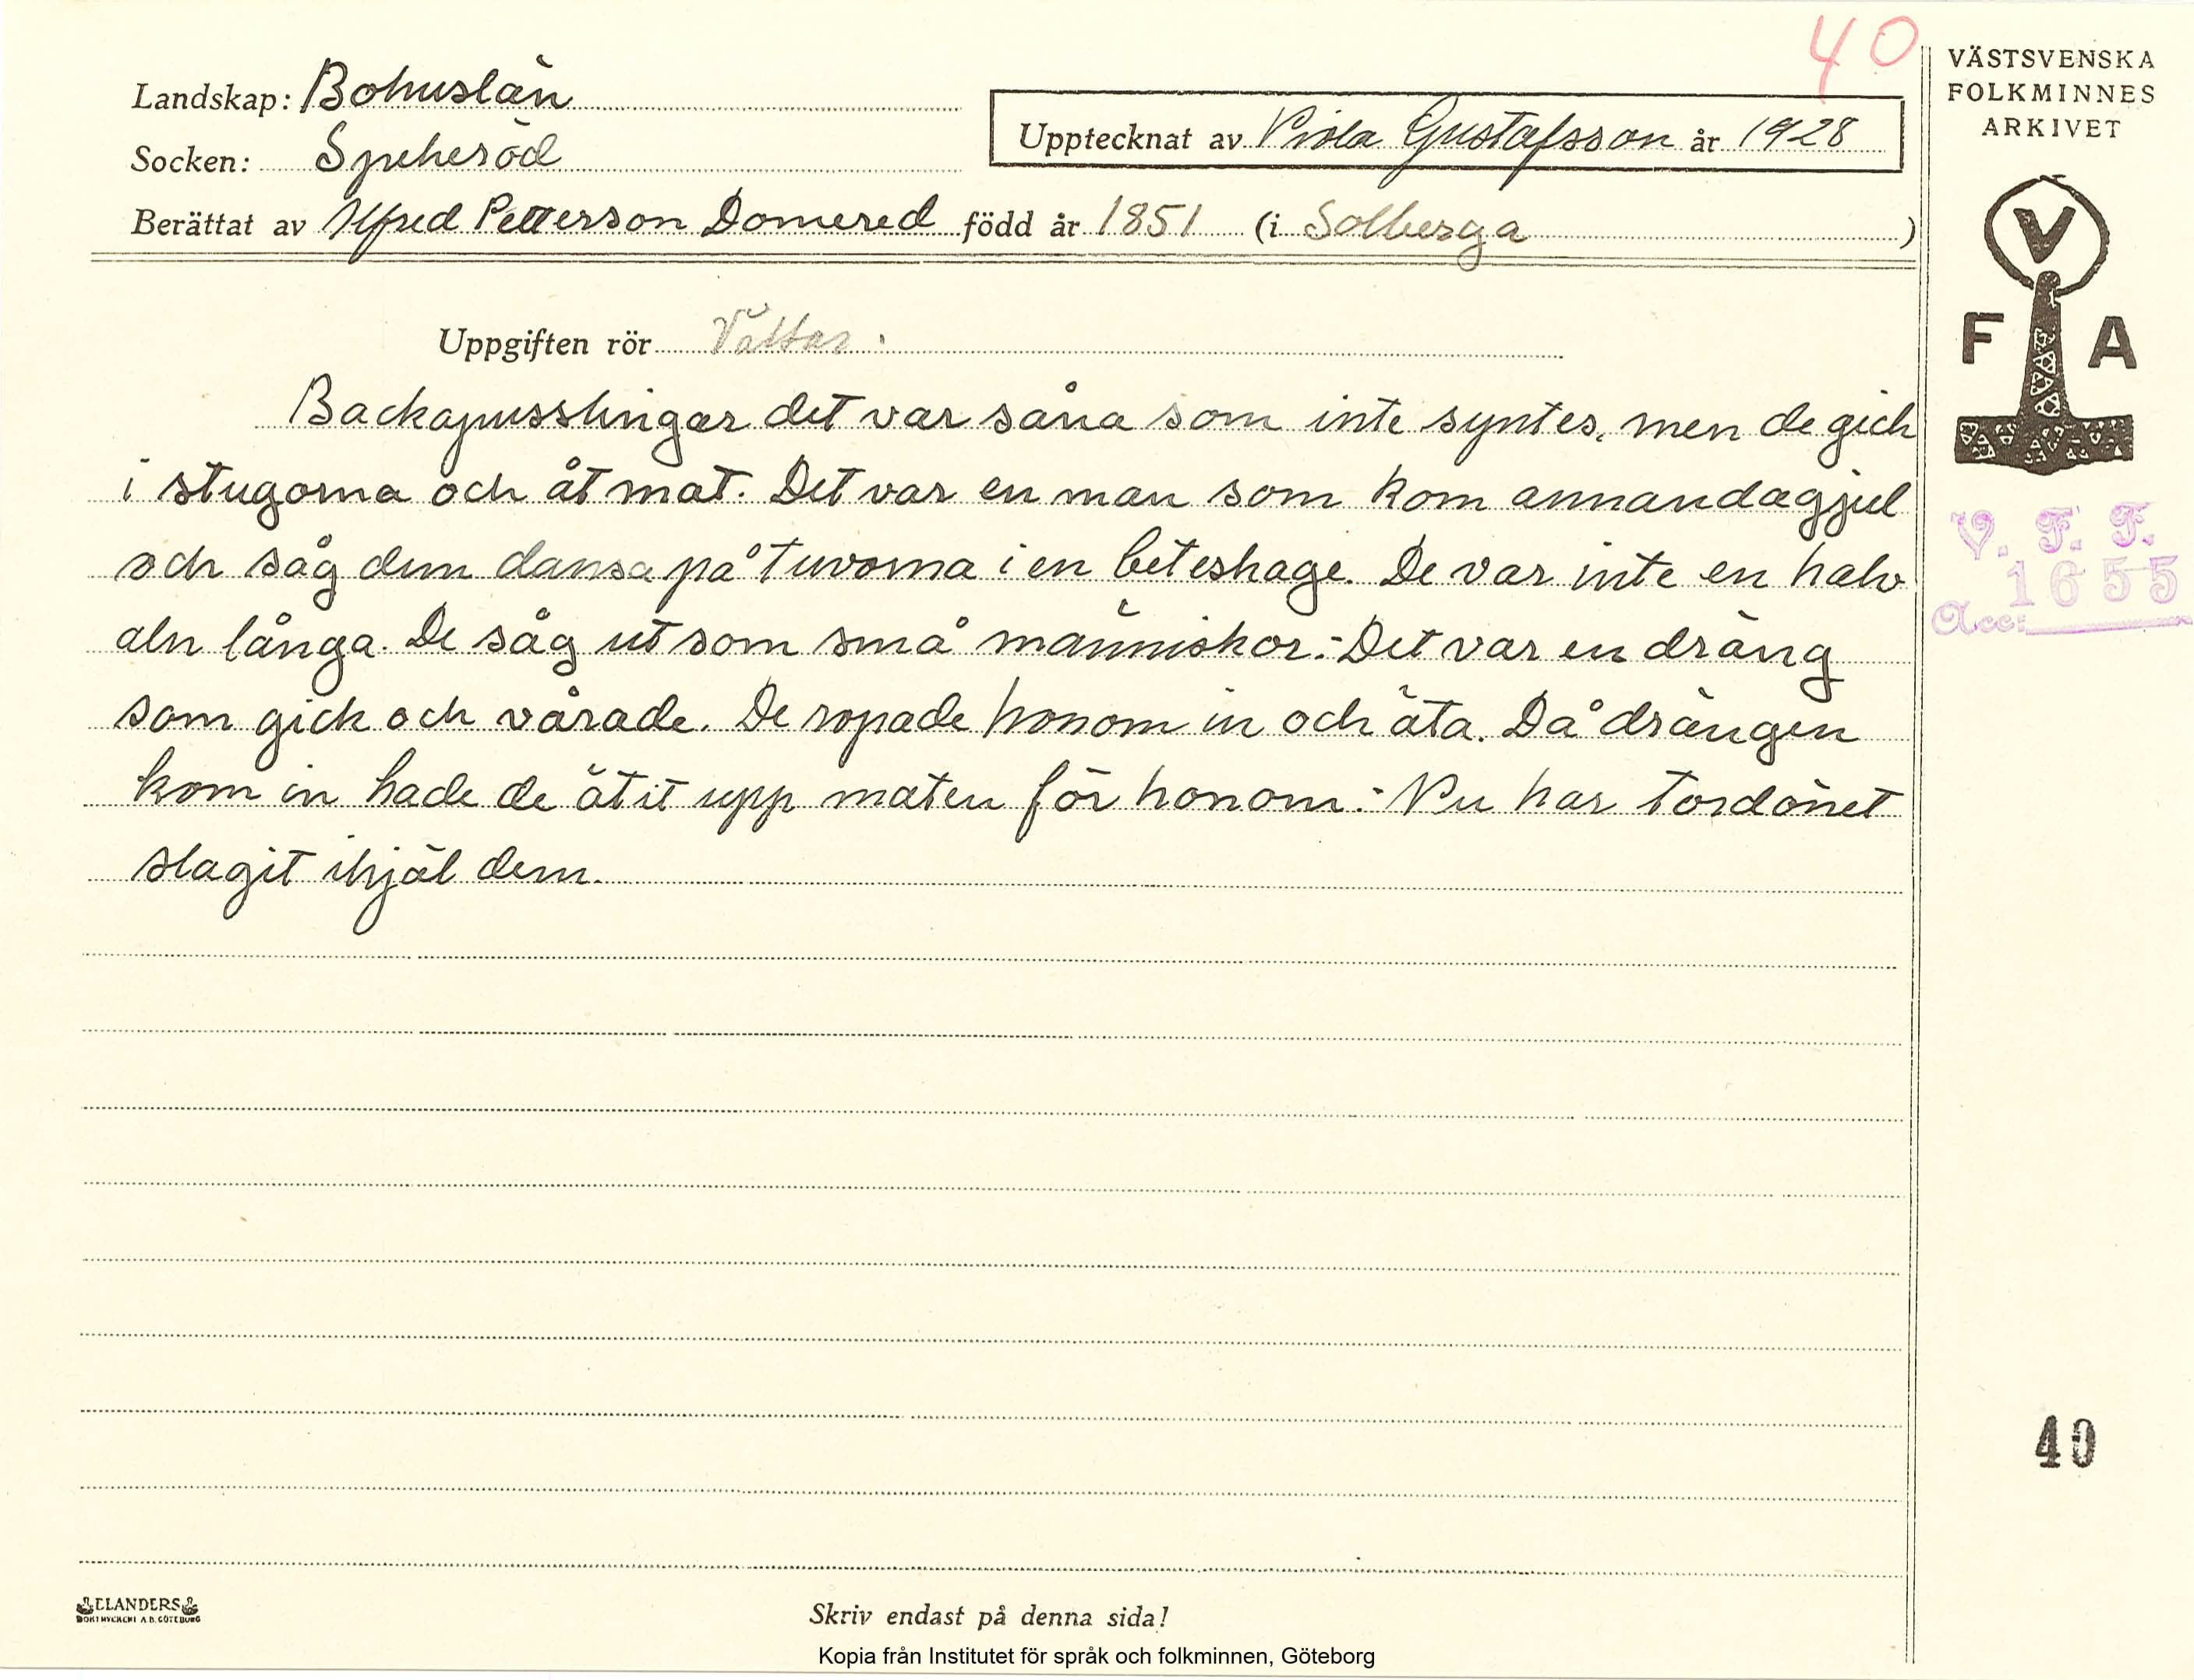 40
Landskap: Bohuslän
Socken: Spekeröd
Upptecknat av Viola Gustafsson år 1928
Berättat av Alfred Petterson Domered född år 1851 (i Solberga)
Uppgiften rör Vättar.
Backapysslingar det var såna som inte syntes, men de gick
i stugorna och åt mat. Det var en man som kom annandagjul
och såg dem dansa på tuvorna i en beteshage. De var inte en halv
aln långa. De såg ut som små människor.- Det var en dräng
som gick och vårade. De ropade honom in och äta. Då drängen
kom in hade de ätit upp maten för honom.- Nu har tordönet
slagit ihjäl dem.
VÄSTSVENSKA
FOLKMINNES
ARKIVET
V
F A
V. F. F.
1655
Acc:
40
ELANDERS
BOKTRYCKERI A.B. GÖTEBORG
Skriv endast på denna sida!
Kopia från Institutet för språk och folkminnen, Göteborg